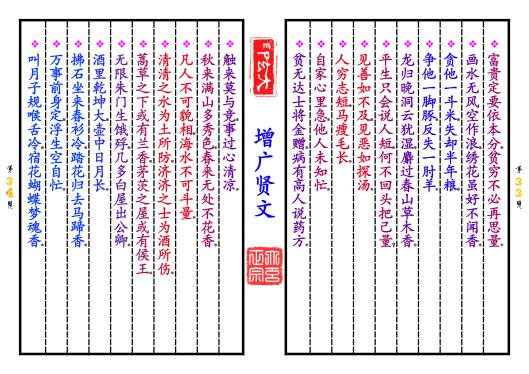 富贵定要依本分贫穷不必再思量。
画水无风空作浪绣花虽好不闻香。
贪他一斗米失却半年粮。
争他一脚豚反失一肘羊。
龙归晚洞云犹湿麝过春山草木香。
平生只会说人短何不回头把己量。
见善如不及见恶如探汤。
人穷志短马瘦毛长。
自家心里急他人未知忙。
贫无达士将金赠病有高人说药方。
第33页
增广贤文
触来莫与竞事过心清凉。
秋来满山多秀色春来无处不花香。
凡人不可貌相海水不可斗量。
清清之水为土所防济济之士为酒所伤。
蒿草之下或有兰香茅茨之屋或有侯王。
无限朱门生饿殍几多白屋出公卿。
酒里乾坤大壶中日月长。
拂石坐来春衫冷踏花归去马蹄香。
万事前身定浮生空自忙。
叫月子规喉舌冷宿花蝴蝶梦魂香。
第34页